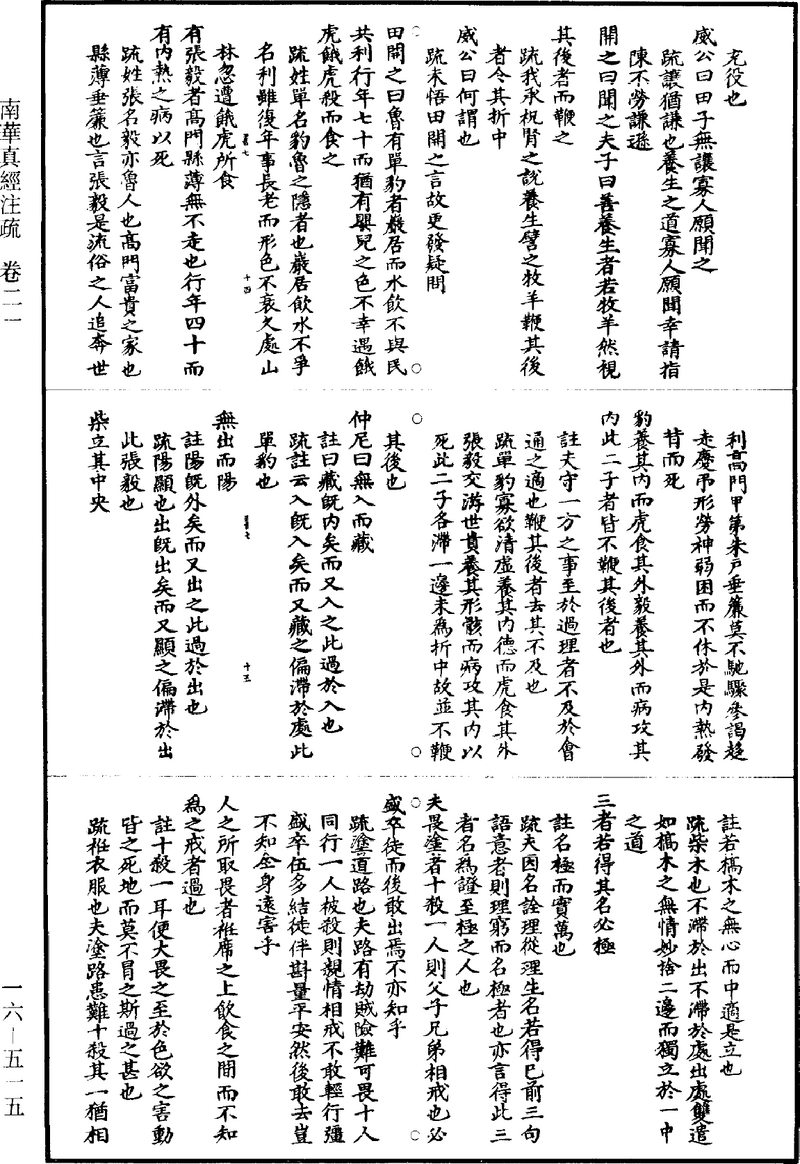 充役也
威公曰田子無讓寡人願聞之
疏讓猶謙也養生之道寡人願聞幸請指
陳不勞謙遜
開之曰聞之夫子曰善養生者若牧羊然視
其後者而鞭之
疏我承祝腎之說養生譬之牧羊鞭其後
者令其折中
威公曰何謂也
疏未悟田開之言故更發疑問
田開之曰魯有單豹者巖居而水飲不與民
共利行年七十而猶有嬰兒之色不幸遇餓
虎餓虎殺而食之
疏姓單名豹魯之隱者也巖居飲水不爭
名利雖復年事長老而形色不衰久處山
林忽遭餓虎所食
有張毅者高門縣薄無不走也行年四十而
有內熱之病以死
疏姓張名毅亦魯人也高門富貴之家也
縣薄垂簾也言張毅是流俗之人追奔世
利高門甲第朱戶垂簾莫不馳驟參謁趍
走慶弔形勞神弱困而不休於是內熱發
背而死
豹養其內而虎食其外毅養其外而病攻其
內此二子者皆不鞭其後者也
註夫守一方之事至於過理者不及於會
通之適也鞭其後者去其不及也
疏單豹寡欲清虛養其內德而虎食其外
張毅交游世貴養其形骸而病攻其內以
死此二子各滯一邊未為折中故並不鞭
其後也
仲尼曰無入而藏
註曰藏既內矣而又入之此過於入也
疏註云入既入矣而又藏之偏滯於處此
單豹也
無出而陽
註陽既外矣而又出之此過於出也
疏陽顯也出既出矣而又顯之偏滯於出
此張毅也
柴立其中央
註若槁木之無心而中適是立也
疏柴木也不滯於出不滯於處出處雙遣
如槁木之無情妙捨二邊而獨立於一中
之道
三者若得其名必極
註名極而實萬也
疏夫因名詮理從理生名若得已前三句
語意者則理窮而名極者也亦言得此三
者名為證至極之人也
夫畏塗者十殺一人則父子兄弟相戒也必
盛卒徒而後敢出焉不亦知乎
疏塗道路也夫路有劫賊險難可畏十人
同行一人被殺則親情相戒不敢輕行彊
盛卒伍多結徒伴斟量平安然後敢去豈
不知全身遠害乎
人之所取畏者袵席之上飲食之間而不知
為之戒者過也
註十殺一耳便大畏之至於色欲之害動
皆之死地而莫不冒之斯過之甚也
疏袵衣服也夫塗路患難十殺其一猶相
南華真經注疏 卷二一
一六—五一五
十四
十五